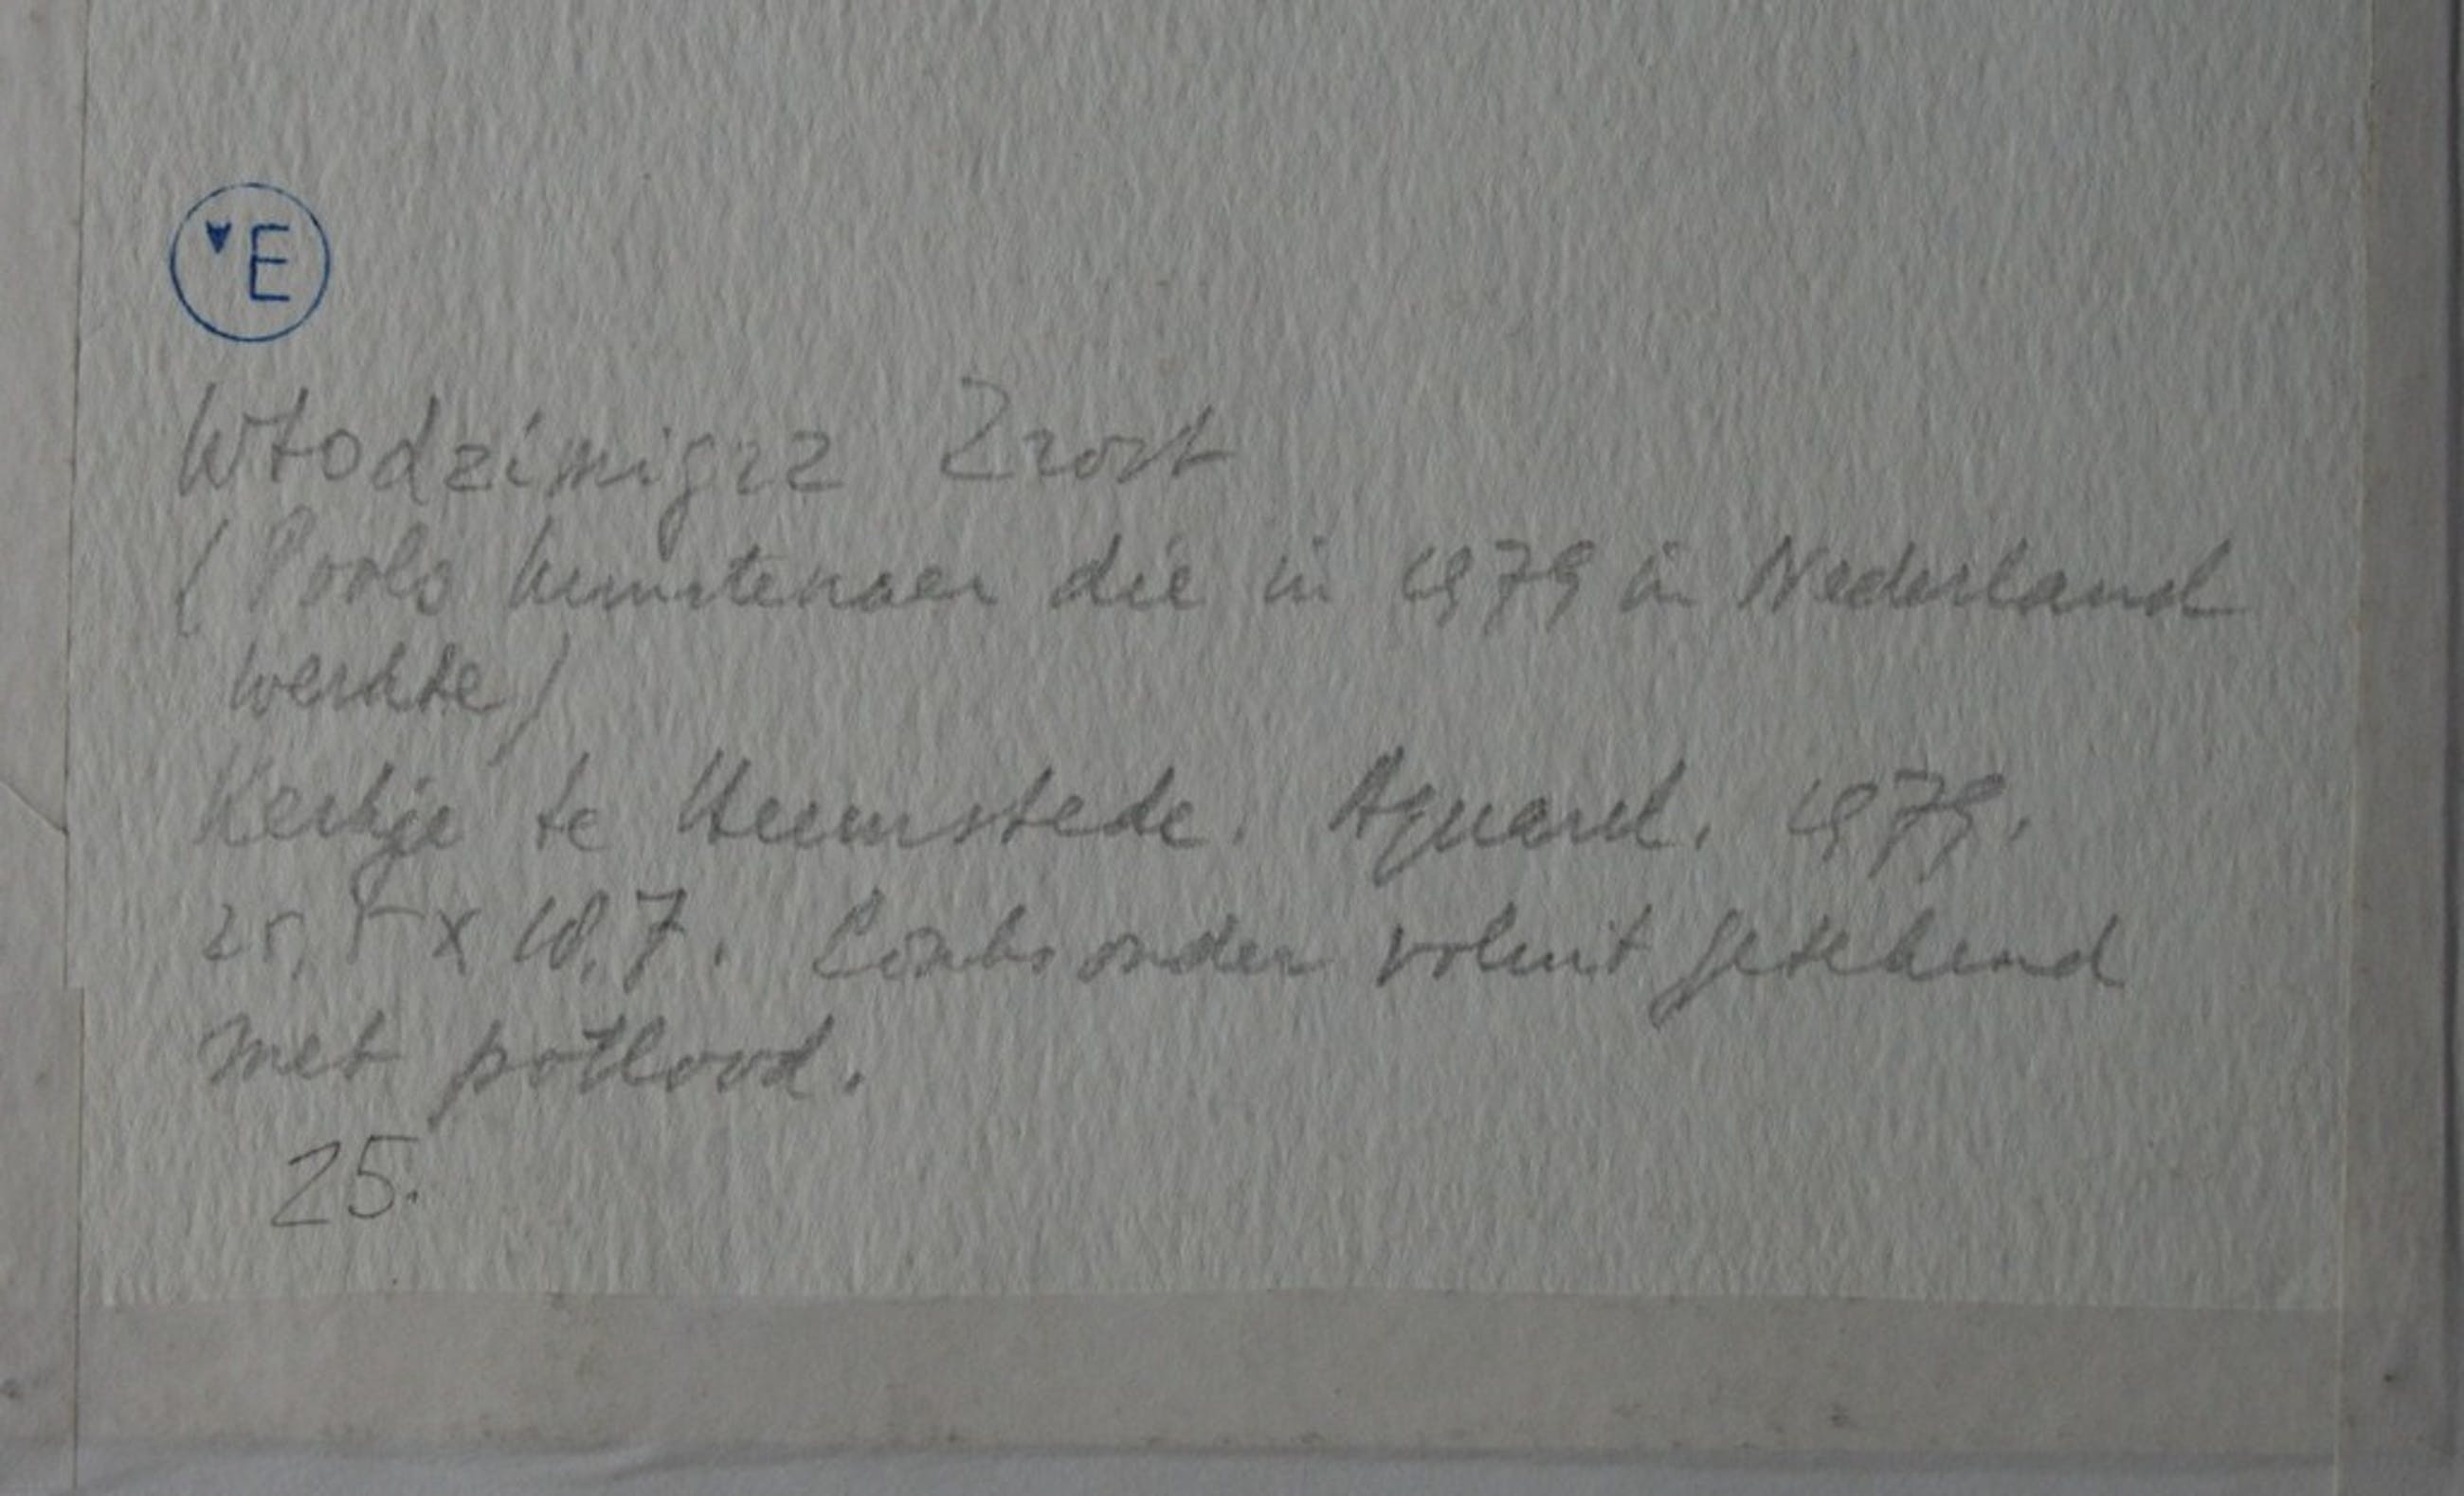 E
Włodzimigrz Zrost
(Pools kunstenaar die in 1979 in Nederland
werkte)
Kerkje te Heemstede. Aquarel. 1979.
25,5 x 18,7. Linksonder voluit getekend
met potlood.
25.